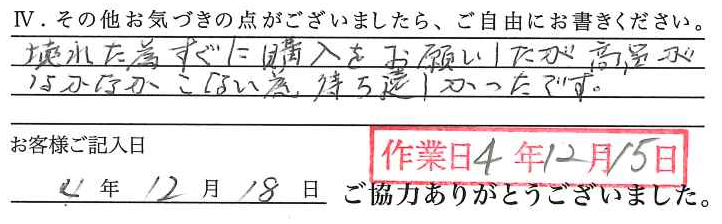 Ⅳ．その他お気づきの点がございましたら、ご自由にお書きください。
壊れた為すぐに購入をお願いしたが商品が
なかなかこない為、待ち遠しかったです。
お客様ご記入日
作業日4年12月15日
4年12月18日 ご協力ありがとうございました。